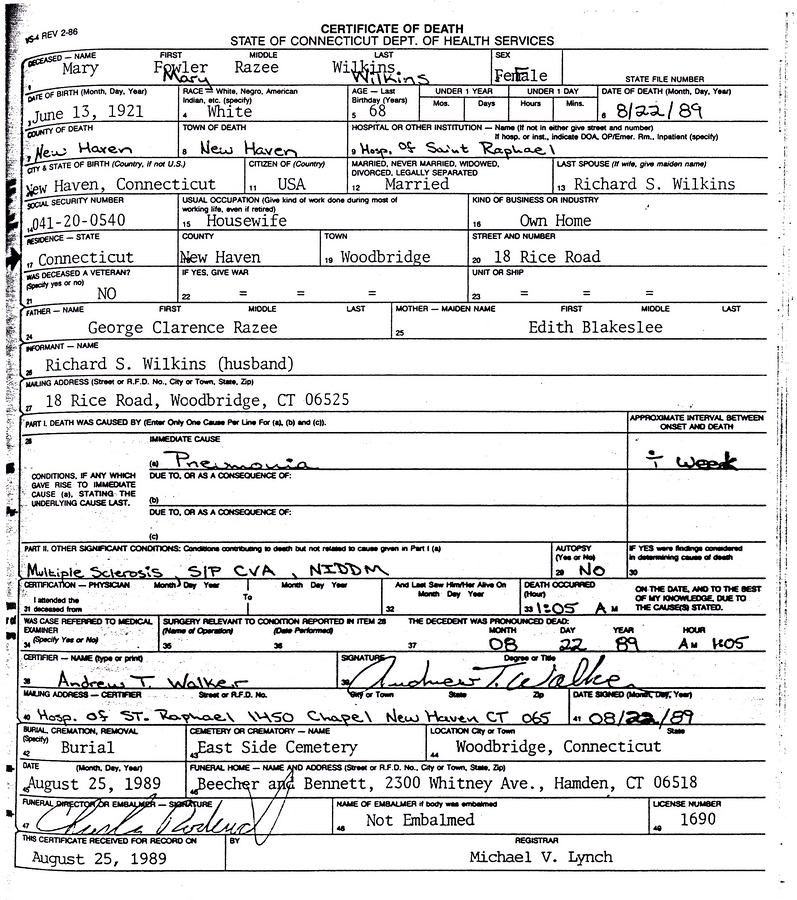 VS-4 REV 2-86
CERTIFICATE OF DEATH
STATE OF CONNECTICUT DEPT. OF HEALTH SERVICES
DECEASED — NAME FIRST MIDDLE LAST SEX STATE FILE NUMBER
Mary Fowler Razee Wilkins Female
Mary Wilkins
DATE OF BIRTH (Month, Day, Year) RACE — White, Negro, American Indian, etc. (specify) AGE — Last Birthday (Years) UNDER 1 YEAR Mos. Days UNDER 1 DAY Hours Mins. DATE OF DEATH (Month, Day, Year)
June 13, 1921 4 White 5 68 6 8/22/89
COUNTY OF DEATH TOWN OF DEATH HOSPITAL OR OTHER INSTITUTION — Name (If not in either give street and number)
If hosp. or inst., indicate DOA, OP/Emer. Rm., Inpatient (specify)
7 New Haven 8 New Haven 9 Hosp. of Saint Raphael
CITY & STATE OF BIRTH (Country, if not U.S.) CITIZEN OF (Country) MARRIED, NEVER MARRIED, WIDOWED, DIVORCED, LEGALLY SEPARATED LAST SPOUSE (If wife, give maiden name)
New Haven, Connecticut 11 USA 12 Married 13 Richard S. Wilkins
SOCIAL SECURITY NUMBER USUAL OCCUPATION (Give kind of work done during most of working life, even if retired) KIND OF BUSINESS OR INDUSTRY
14 041-20-0540 15 Housewife 16 Own Home
RESIDENCE — STATE COUNTY TOWN STREET AND NUMBER
17 Connecticut New Haven 19 Woodbridge 20 18 Rice Road
WAS DECEASED A VETERAN? (Specify yes or no) IF YES, GIVE WAR UNIT OR SHIP
21 NO 22 = = = 23 = = =
FATHER — NAME FIRST MIDDLE LAST MOTHER — MAIDEN NAME FIRST MIDDLE LAST
24 George Clarence Razee 25 Edith Blakeslee
INFORMANT — NAME
26 Richard S. Wilkins (husband)
MAILING ADDRESS (Street or R.F.D. No., City or Town, State, Zip)
27 18 Rice Road, Woodbridge, CT 06525
PART I. DEATH WAS CAUSED BY (Enter Only One Cause Per Line For (a), (b) and (c)). APPROXIMATE INTERVAL BETWEEN ONSET AND DEATH
28 IMMEDIATE CAUSE
(a) Pneimonia 1 week
CONDITIONS, IF ANY WHICH GAVE RISE TO IMMEDIATE CAUSE (a), STATING THE UNDERLYING CAUSE LAST.
DUE TO, OR AS A CONSEQUENCE OF:
(b)
DUE TO, OR AS A CONSEQUENCE OF:
(c)
PART II. OTHER SIGNIFICANT CONDITIONS: Conditions contributing to death but not related to cause given in Part I (a) AUTOPSY (Yes or No) IF YES were findings considered in determining cause of death
Multiple Sclerosis, S/P CVA, NIDDM 29 No 30
CERTIFICATION — PHYSICIAN Month Day Year Month Day Year And Last Saw Him/Her Alive On Month Day Year DEATH OCCURRED (Hour) ON THE DATE, AND TO THE BEST OF MY KNOWLEDGE, DUE TO THE CAUSE(S) STATED.
31 I attended the deceased from To 32 33 1:05 A M
WAS CASE REFERRED TO MEDICAL EXAMINER (Specify Yes or No) SURGERY RELEVANT TO CONDITION REPORTED IN ITEM 28 (Name of Operation) (Date Performed) THE DECEDENT WAS PRONOUNCED DEAD: MONTH DAY YEAR HOUR
34 35 36 37 08 22 89 AM 1:05
CERTIFIER — NAME (type or print) SIGNATURE Degree or Title
38 Andrew T. Walker 39 Andrew T. Walker
MAILING ADDRESS — CERTIFIER Street or R.F.D. No. City or Town State Zip DATE SIGNED (Month, Day, Year)
40 Hosp. of ST. Raphael 1450 Chapel New Haven CT 065 41 08/22/89
BURIAL, CREMATION, REMOVAL (Specify) CEMETERY OR CREMATORY — NAME LOCATION City or Town State
42 Burial 43 East Side Cemetery 44 Woodbridge, Connecticut
DATE (Month, Day, Year) FUNERAL HOME — NAME AND ADDRESS (Street or R.F.D. No., City or Town, State, Zip)
45 August 25, 1989 46 Beecher and Bennett, 2300 Whitney Ave., Hamden, CT 06518
FUNERAL DIRECTOR OR EMBALMER — SIGNATURE NAME OF EMBALMER if body was embalmed LICENSE NUMBER
47 48 Not Embalmed 49 1690
THIS CERTIFICATE RECEIVED FOR RECORD ON BY REGISTRAR
August 25, 1989 Michael V. Lynch